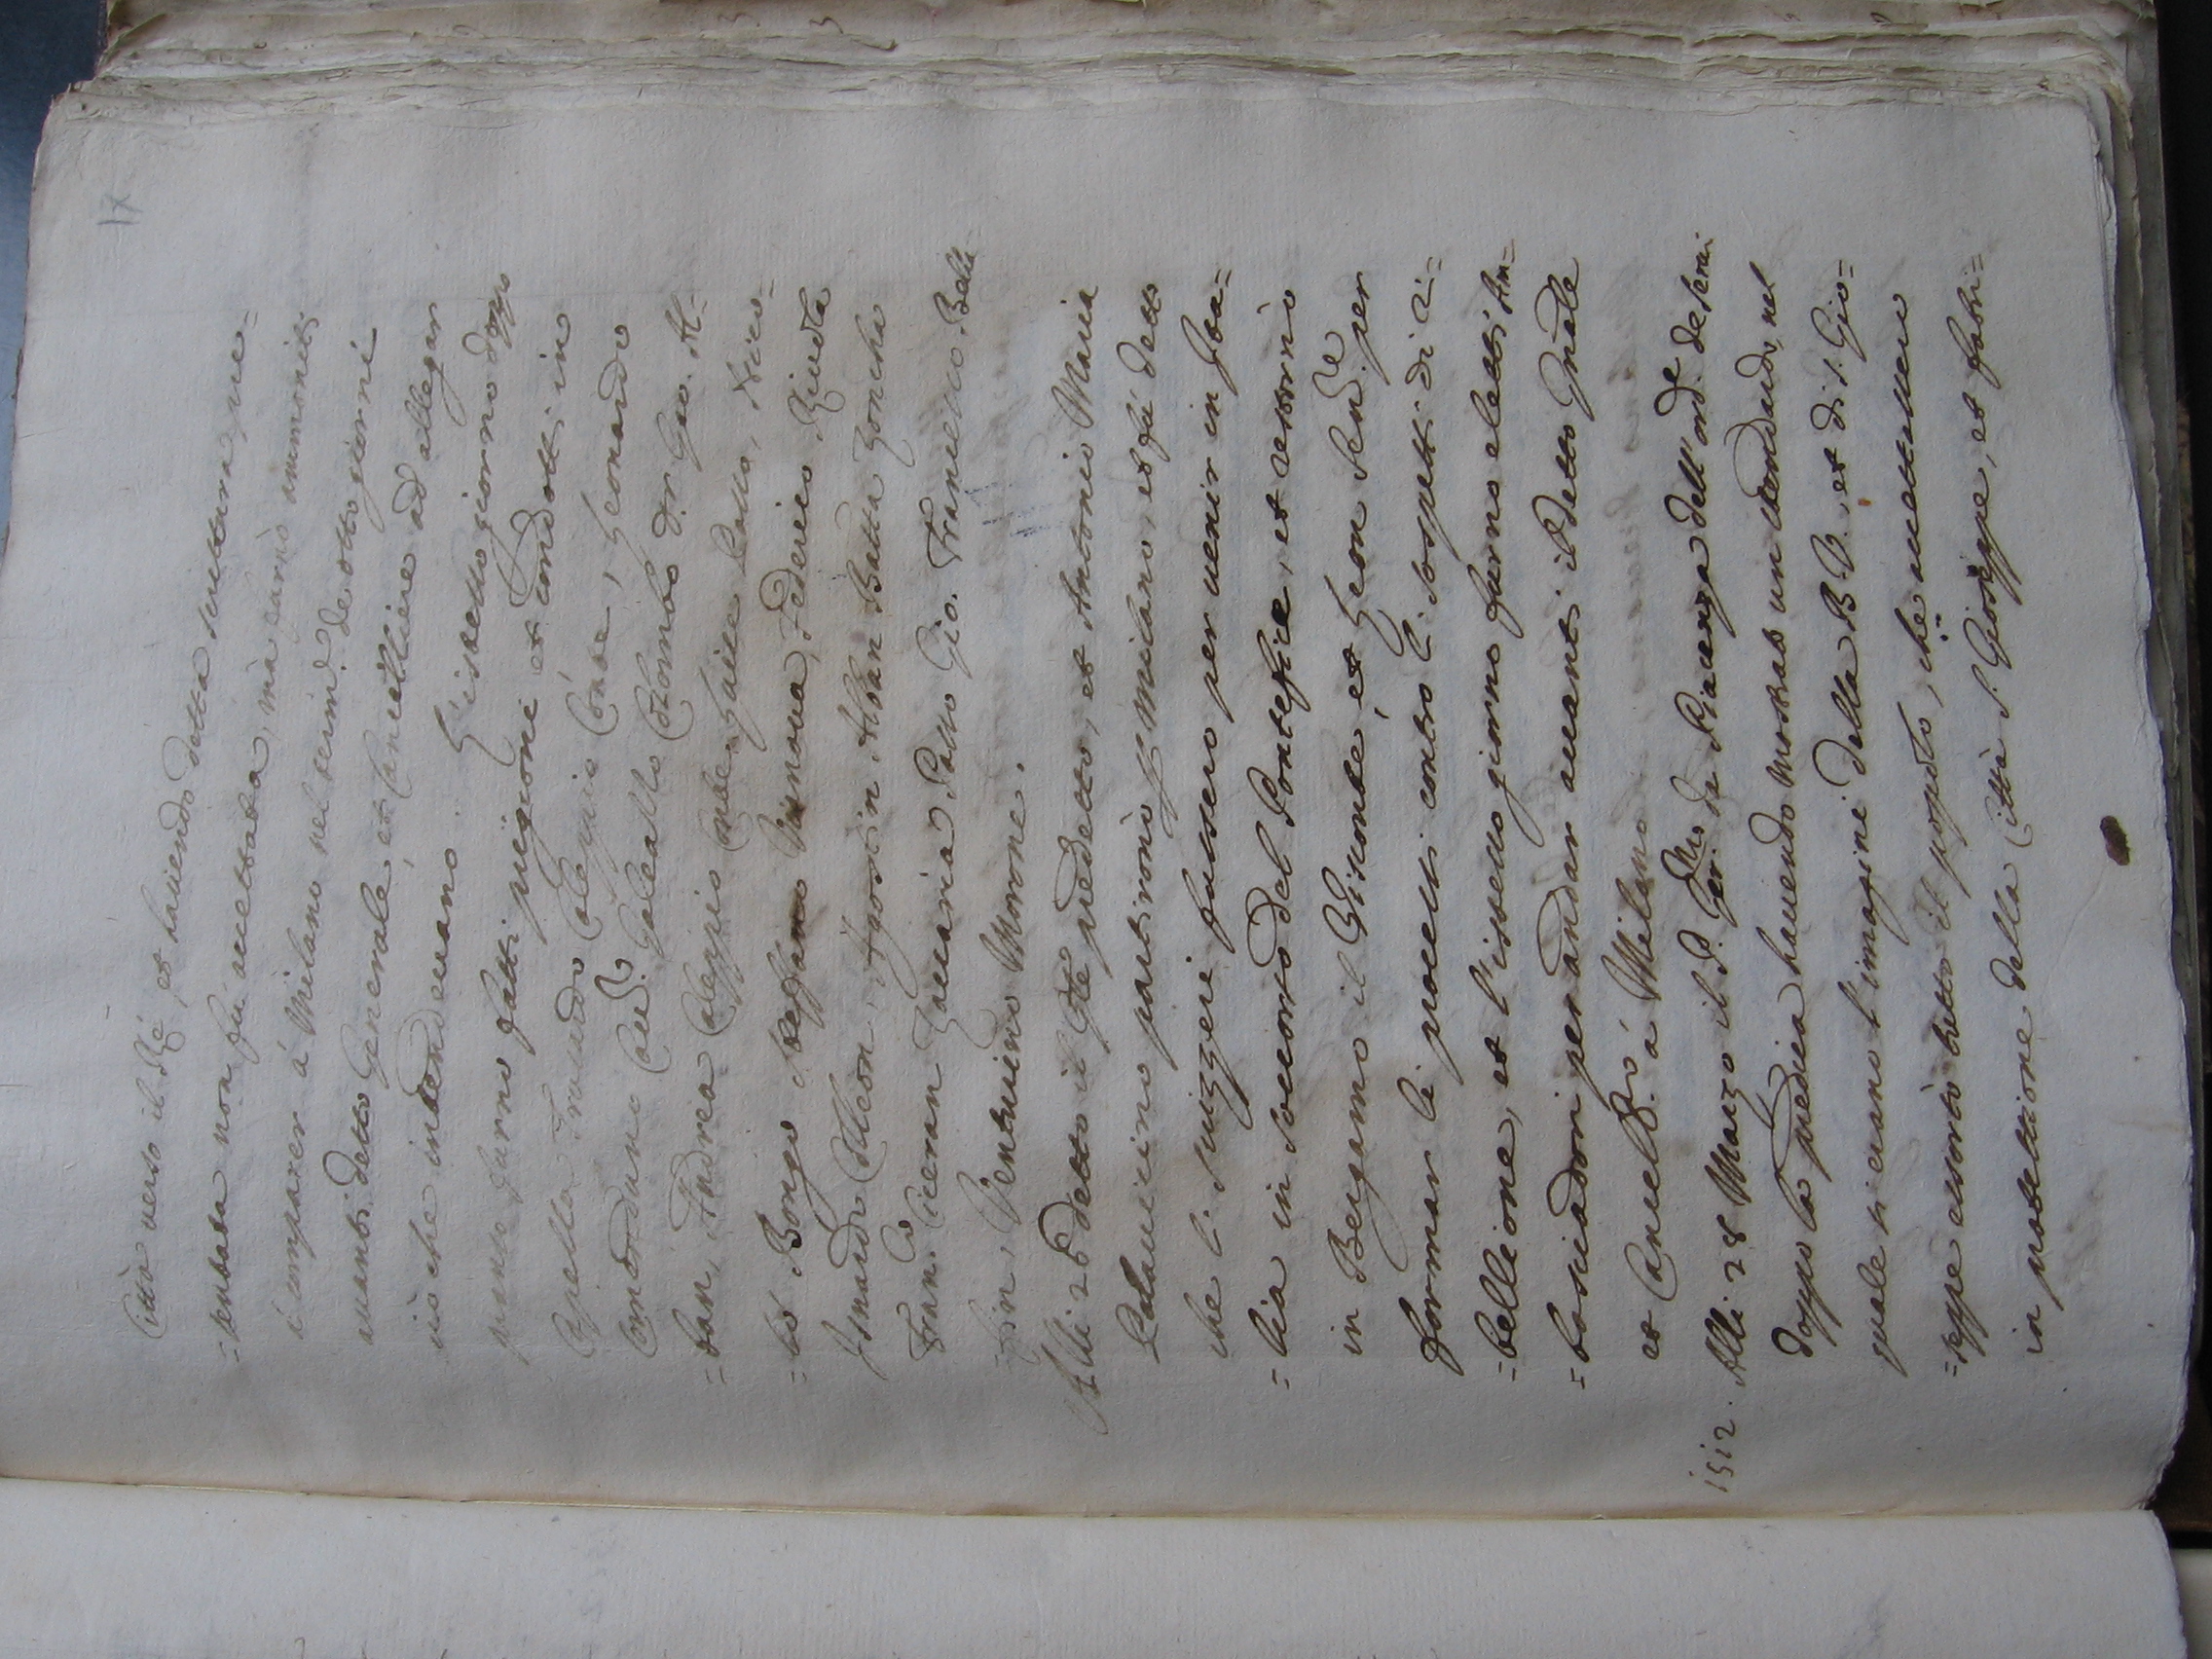 17
Città verso il Rè, et havendo detta scrittura pre=
=sentata non fù accettata, mà earno ammoniti
à comparer à Milano nel termᵉ. de otto giorni
avanti detto Generale, et Cancelliere ad allegar
ciò che intendevano. L'istesso giorno doppo
pranso furno fatti preggioni et condotti in
Capella Trovado Caleppio Conte, Leonardo
Comenduno Cavʳ. Galeazzo Colombo Dr. Gio. Al=
=ban, Andrea Caleppio Conte, Gallo, Nico=
=lò Bongo, Steffano Federico Rivola
Isnardo Colleon, Agostin Alban Batta Zoncha
Franᶜᵒ. Liceran Zaccaria Passo Gio. Francesco Bella=
=fin, Venturino Morone.
Alli 26 detto il Gñle predetto, et Antonio Maria
Palavicino partirono per Milano, et fù detto
che li Suizzeri fussero per venir in Ita=
=lia in soccorso del Pontefice, et restorno
in Bergamo il Visconte, et Leon Senᵈᵉ per
formar li processi contro li sospetti di ri=
=bellione, et l'istesso giorno furno eletti Am=
=basciadori per andar avanti il detto Gñale
et Cancellʳᵒ. à Milano.
1512. Alli 28 Marzo il P. Gerᵐᵒ da Piacenza dell'ordᵉ de Servi
doppo la predica havendo mostrato un stendardo, nel
quale vi erano l'imagini della B.V. et di S. Gio=
=seppe essortò tutto il popolo, che accettassero
in protettione della Città S. Gioseppe, et fabri=